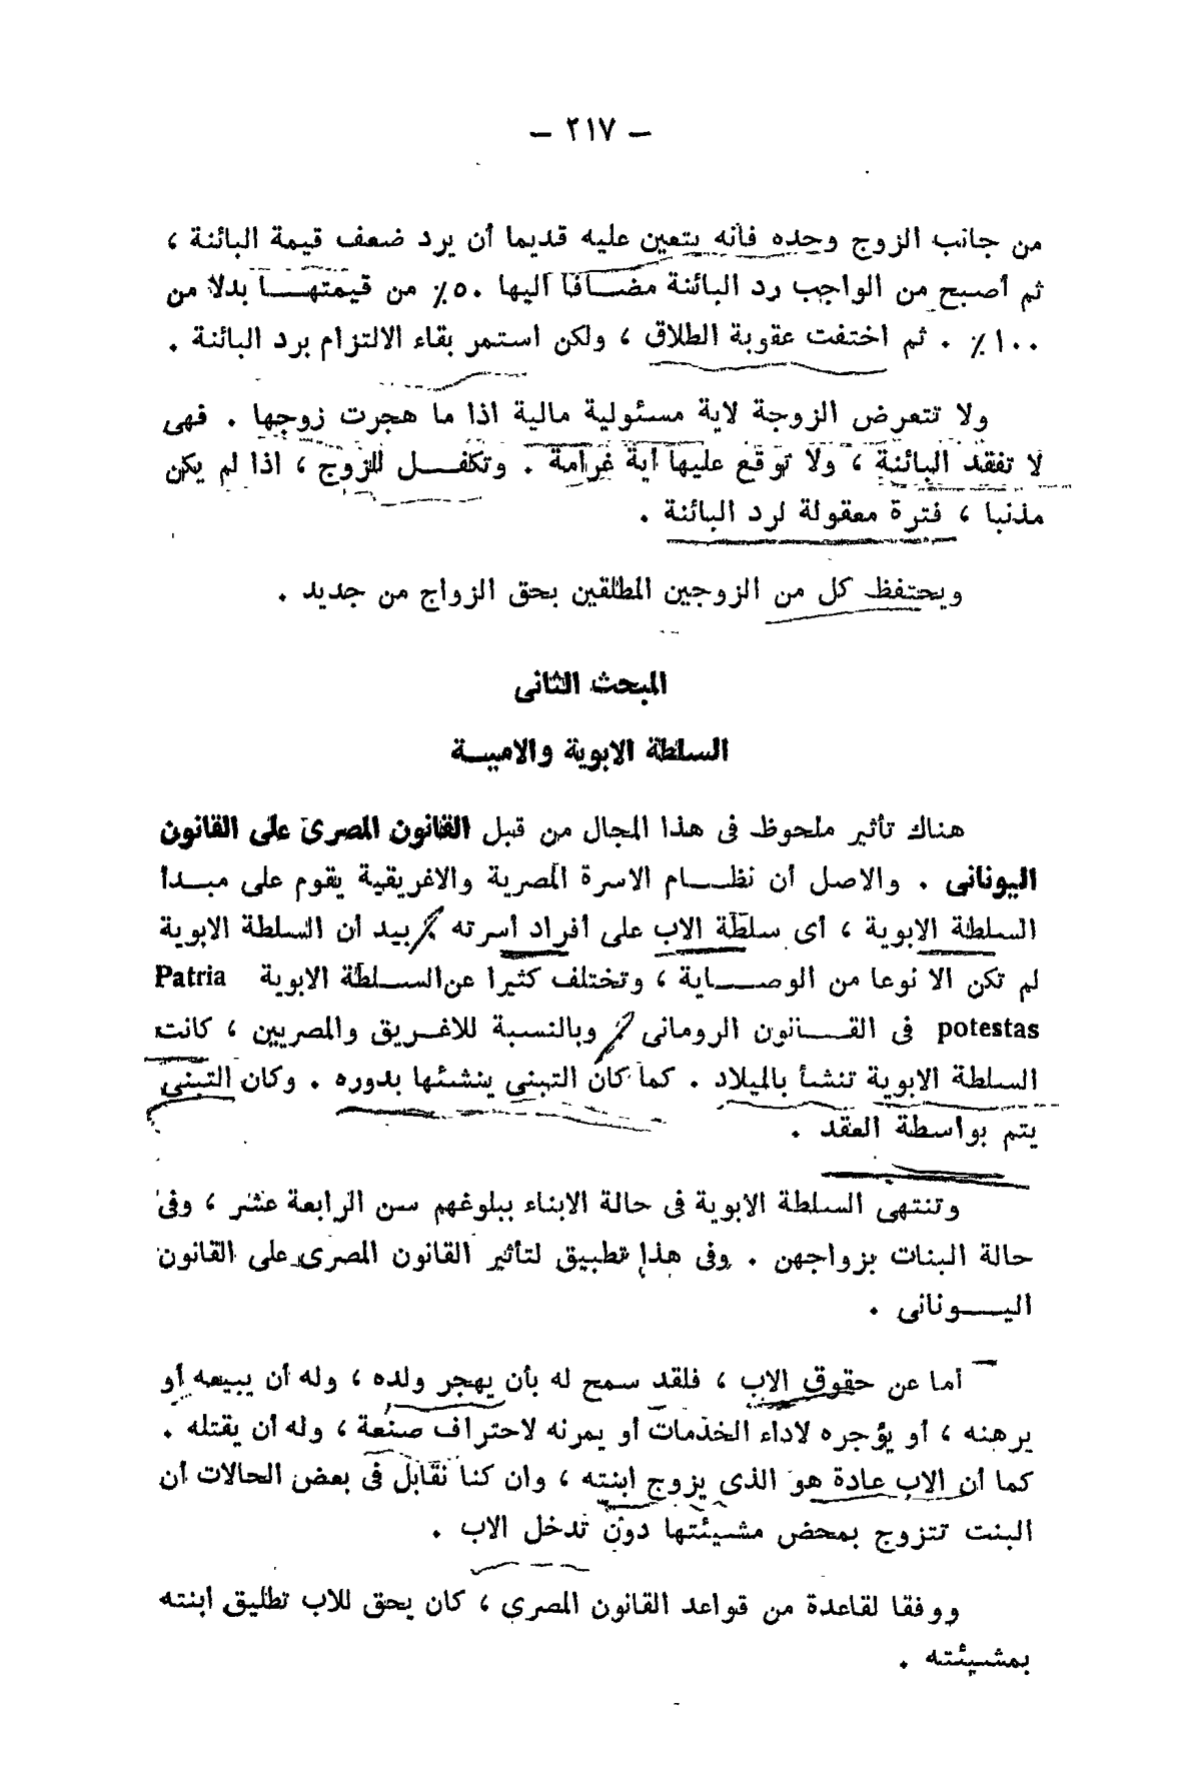 — ٢١٧ —
من جانب الزوج وحده فانه يتعين عليه قديما أن يرد ضعف قيمة البائنة ،
ثم أصبح من الواجب رد البائنة مضافا اليها ٥٠٪ من قيمتها بدلا من
١٠٠٪ . ثم اختفت عقوبة الطلاق ، ولكن استمر بقاء الالتزام برد البائنة .
ولا تتعرض الزوجة لاية مسئولية مالية اذا ما هجرت زوجها . فهى
لا تفقد البائنة ، ولا توقع عليها أية غرامة . وتكفل للزوج ، اذا لم يكن
مذنبا ، فترة معقولة لرد البائنة .
ويحتفظ كل من الزوجين المطلقين بحق الزواج من جديد .
المبحث الثانى
السلطة الابوية والامية
هناك تأثير ملحوظ فى هذا المجال من قبل القانون المصرى على القانون
اليونانى . والاصل أن نظام الاسرة المصرية والاغريقية يقوم على مبدا
السلطة الابوية ، أى سلطة الاب على أفراد أسرته . بيد أن السلطة الابوية
لم تكن الا نوعا من الوصاية ، وتختلف كثيرا عن السلطة الابوية Patria
potestas فى القانون الرومانى . وبالنسبة للاغريق والمصريين ، كانت
السلطة الابوية تنشأ بالميلاد . كما كان التبنى ينشئها بدوره . وكان التبنى
يتم بواسطة العقد .
وتنتهى السلطة الابوية فى حالة الابناء ببلوغهم سن الرابعة عشر ، وفى
حالة البنات بزواجهن . وفى هذا تطبيق لتأثير القانون المصرى على القانون
اليونانى .
أما عن حقوق الاب ، فلقد سمح له بأن يهجر ولده ، وله أن يبيعه أو
يرهنه ، أو يؤجره لاداء الخدمات أو يمرنه لاحتراف صنعة ، وله أن يقتله .
كما أن الاب عادة هو الذى يزوج ابنته ، وان كنا نقابل فى بعض الحالات أن
البنت تتزوج بمحض مشيئتها دون تدخل الاب .
ووفقا لقاعدة من قواعد القانون المصرى ، كان يحق للاب تطليق ابنته
بمشيئته .